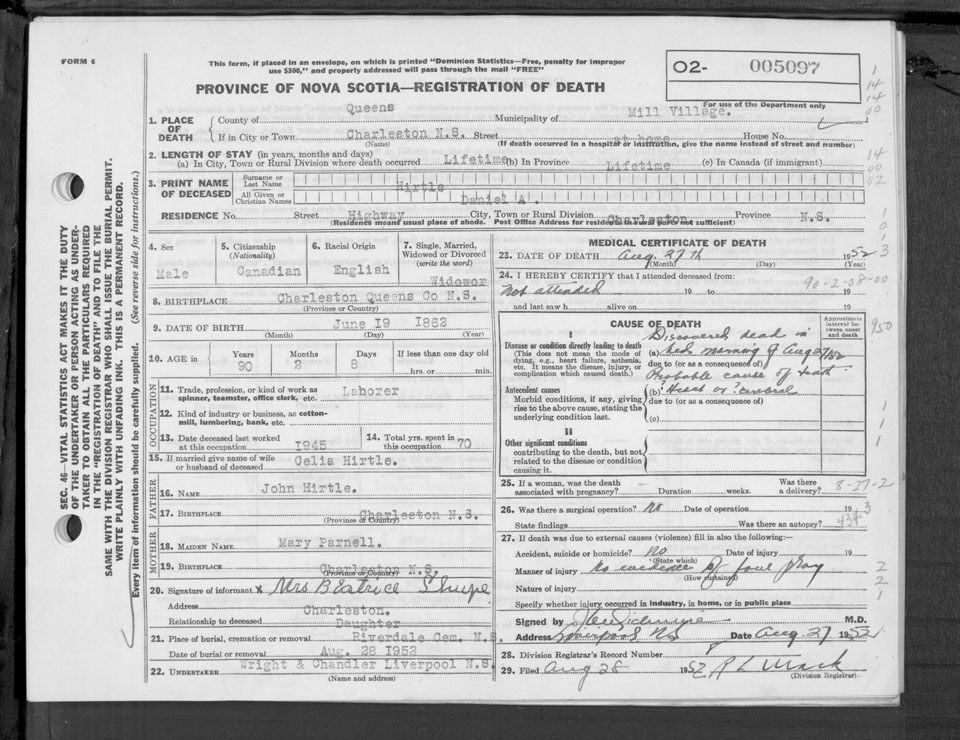 FORM 6
This form, if placed in an envelope, on which is printed "Dominion Statistics—Free, penalty for improper
use $300," and properly addressed will pass through the mail "FREE"
02- 005097
For use of the Department only
PROVINCE OF NOVA SCOTIA—REGISTRATION OF DEATH
1. PLACE OF DEATH
County of Queens Municipality of Mill Village.
If in City or Town Charleston N.S. Street at home House No.
(Name) (If death occurred in a hospital or institution, give the name instead of street and number)
2. LENGTH OF STAY (in years, months and days)
(a) In City, Town or Rural Division where death occurred Lifetime (b) In Province Lifetime (c) In Canada (if immigrant)
3. PRINT NAME OF DECEASED
Surname or Last Name Hirtle
All Given or Christian Names Daniel A.
RESIDENCE No. Street Highway City, Town or Rural Division Charleston Province N.S.
(Residence means usual place of abode. Post Office Address for residents of rural parts not sufficient)
4. Sex Male
5. Citizenship (Nationality) Canadian
6. Racial Origin English
7. Single, Married, Widowed or Divorced (write the word) Widowor
8. BIRTHPLACE Charleston Queens Co N.S.
(Province or Country)
9. DATE OF BIRTH June I9 I862
(Month) (Day) (Year)
10. AGE in Years 90 Months 2 Days 8 If less than one day old
hrs. or min.
OCCUPATION
11. Trade, profession, or kind of work as spinner, teamster, office clerk, etc. Laborer
12. Kind of industry or business, as cotton-mill, lumbering, bank, etc.
13. Date deceased last worked at this occupation I945
14. Total yrs. spent in this occupation 70
15. If married give name of wife or husband of deceased Celia Hirtle.
FATHER
16. NAME John Hirtle.
17. BIRTHPLACE Charleston N.S.
(Province or Country)
MOTHER
18. MAIDEN NAME Mary Parnell.
19. BIRTHPLACE Charleston N.S.
(Province or Country)
20. Signature of informant x Mrs Beatrice Shupe
Address Charleston.
Relationship to deceased Daughter
21. Place of burial, cremation or removal Riverdale Cem. N.S.
Date of burial or removal Aug. 28 I952
22. UNDERTAKER Wright & Chandler Liverpool N.S.
(Name and address)
MEDICAL CERTIFICATE OF DEATH
23. DATE OF DEATH Aug. 27th 1952
(Month) (Day) (Year)
24. I HEREBY CERTIFY that I attended deceased from:
Not attended 19 to 19
and last saw h alive on 19
90-2-08-00
CAUSE OF DEATH
Approximate interval between onset and death
I
Disease or condition directly leading to death
(This does not mean the mode of dying, e.g., heart failure, asthenia, etc. It means the disease, injury, or complication which caused death.)
Discovered dead in
(a) bed morning of Aug 27/52
due to (or as a consequence of)
Probable cause of death
Antecedent causes
Morbid conditions, if any, giving rise to the above cause, stating the underlying condition last.
(b) "Heart or" Cerebral
due to (or as a consequence of)
(c)
II
Other significant conditions
contributing to the death, but not related to the disease or condition causing it.
25. If a woman, was the death associated with pregnancy? — Duration weeks. Was there a delivery?
8-27-2
26. Was there a surgical operation? No Date of operation 19
State findings Was there an autopsy?
434-3
27. If death was due to external causes (violence) fill in also the following:—
Accident, suicide or homicide? No Date of injury 19
(State which)
Manner of injury No evidence of foul play
(How sustained)
Nature of injury
Specify whether injury occurred in industry, in home, or in public place
Signed by M.D.
Address Liverpool NS Date Aug 27 1952
28. Division Registrar's Record Number
29. Filed Aug 28 1952 R L Mack
(Division Registrar)
SEC. 46—VITAL STATISTICS ACT MAKES IT THE DUTY
OF THE UNDERTAKER OR PERSON ACTING AS UNDER-
TAKER TO OBTAIN ALL THE PARTICULARS REQUIRED
IN THE "REGISTRATION OF DEATH" AND TO FILE THE
SAME WITH THE DIVISION REGISTRAR WHO SHALL ISSUE THE BURIAL PERMIT.
WRITE PLAINLY WITH UNFADING INK. THIS IS A PERMANENT RECORD.
Every item of information should be carefully supplied. (See reverse side for instructions.)